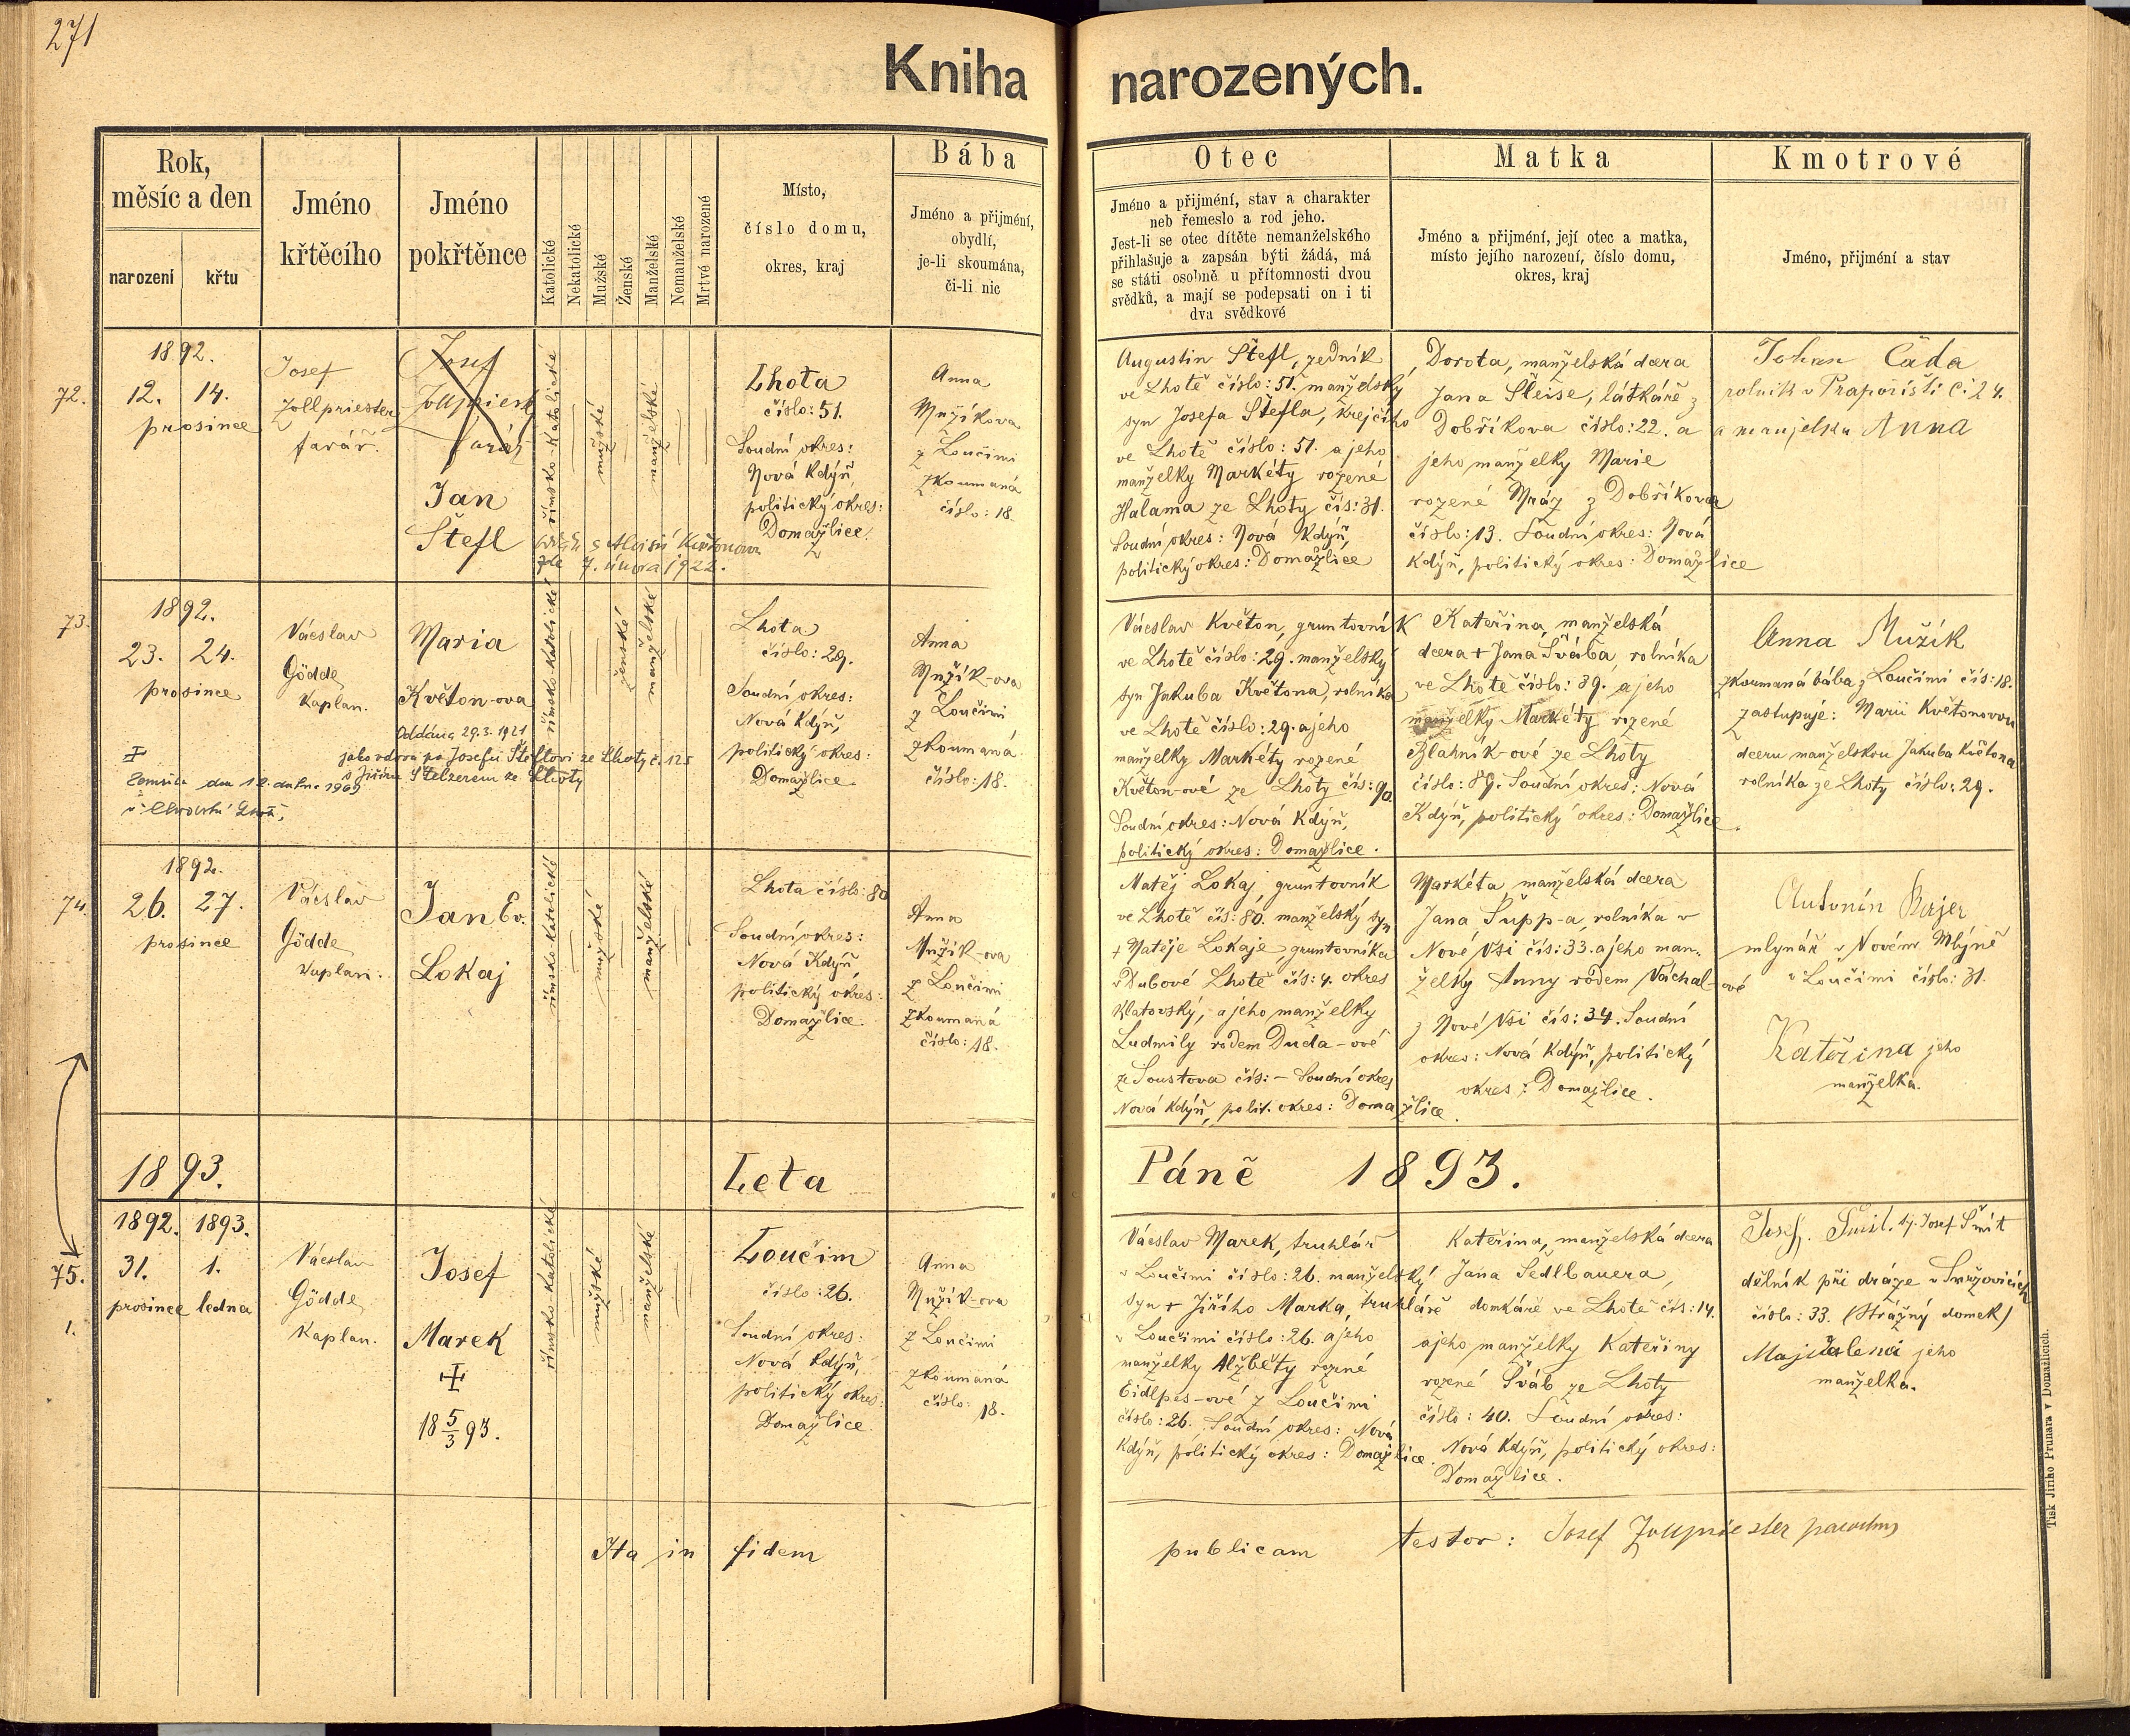 271
Kniha narozených.
Rok,
měsíc a den
narození
křtu
Jméno
křtěcího
Jméno
pokřtěnce
Katolické
Nekatolické
Mužské
Ženské
Manželské
Nemanželské
Mrtvé narozené
Místo,
číslo domu,
okres, kraj
Bába
Jméno a přijmění,
obydlí,
je-li skoumána,
či-li nic
Otec
Jméno a přijmění, stav a charakter
neb řemeslo a rod jeho.
Jest-li se otec dítěte nemanželského
přihlašuje a zapsán býti žádá, má
se státi osobně u přítomnosti dvou
svědků, a mají se podepsati on i ti
dva svědkové
Matka
Jméno a přijmění, její otec a matka,
místo jejího narození, číslo domu,
okres, kraj
Kmotrové
Jméno, přijmění a stav
72.
1892.
12. 14.
prosince
Josef
Zollpriester
farář.
Josef
farář
Jan
Štefl
římsko-katolické
mužské
manželské
zde 7. února 1922.
Lhota
číslo: 51.
Soudní okres:
Nová Kdýň,
politický okres:
Domažlice.
Anna
Mužíkova
z Loučimi
zkoumaná
číslo: 18.
Augustin Štefl, zedník
ve Lhotě číslo: 51. manželský
syn Josefa Štefla, krejčího
ve Lhotě číslo: 51. a jeho
manželky Markéty rozené
Halama ze Lhoty čís: 31.
Soudní okres: Nová Kdýň,
politický okres: Domažlice
Dorota, manželská dcera
Jana Šleise, látkáře z
Dobříkova číslo: 22. a
jeho manželky Marie
rozené Mráz z Dobříkova
číslo: 13. Soudní okres: Nová
Kdýň, politický okres: Domažlice
Johan Čada
rolník v Prapořišti č: 24.
a manželka Anna
73.
1892.
23. 24.
prosince
Václav
Gödde
Kaplan.
Maria
Květon-ova
Oddána 29.3.1921
jako vdova po Josefu Šteflovi ze Lhoty č. 125
s Jiřím Stelzerem ze Lhoty
Zemřela dne 12. dubna 1969
římsko-katolické
ženské
manželské
Lhota
číslo: 29.
Soudní okres:
Nová Kdýň,
politický okres:
Domažlice.
Anna
Mužík-ova
z Loučimi
zkoumaná
číslo: 18.
Václav Květon, gruntovník
ve Lhotě číslo: 29. manželský
syn Jakuba Květona, rolníka
ve Lhotě číslo: 29. a jeho
manželky Markéty rozené
Květon-ové ze Lhoty čís: 90.
Soudní okres: Nová Kdýň,
politický okres: Domažlice.
Kateřina, manželská
dcera + Jana Švába, rolníka
ve Lhotě číslo: 89. a jeho
manželky Markéty rozené
Blahník-ové ze Lhoty
číslo: 89. Soudní okres: Nová
Kdýň, politický okres: Domažlice.
Anna Mužík
zkoumaná bába z Loučimi čís: 18.
zastupuje: Marii Květonovou
dceru manželskou Jakuba Květona
rolníka ze Lhoty číslo: 29.
74.
1892.
26. 27.
prosince
Václav
Gödde
Kaplan.
Jan Ev.
Lokaj
římsko-katolické
mužské
manželské
Lhota číslo: 80
Soudní okres:
Nová Kdýň
politický okres:
Domažlice.
Anna
Mužík-ova
z Loučimi
zkoumaná
číslo: 18.
Matěj Lokaj, gruntovník
ve Lhotě čís: 80. manželský syn
+ Matěje Lokaje, gruntovníka
v Dubové Lhotě čís: 4. okres
Klatovský, a jeho manželky
Ludmily rodem Duda-ové
ze Soustova čís: – Soudní okres
Nová Kdýň, polit. okres: Domažlice.
Markéta, manželská dcera
Jana Šupp-a, rolníka v
Nové Vsi čís: 33. a jeho man-
želky Anny rodem Váchal-ové
z Nové Vsi čís: 34. Soudní
okres: Nová Kdýň, politický
okres: Domažlice.
Antonín
mlynář v Novém Mlýně
v Loučimi číslo: 31.
Kateřina jeho
manželka.
1893. Leta Páně 1893.
75.
1.
1892. 1893.
31. 1.
prosince ledna
Václav
Gödde
Kaplan.
Josef
Marek
18 5/3 93.
římsko katolické
mužské
manželské
Loučim
číslo: 26.
Soudní okres:
Nová Kdýň,
politický okres:
Domažlice.
Anna
Mužík-ova
z Loučimi
zkoumaná
číslo: 18.
Václav Marek, truhlář
v Loučimi číslo: 26. manželský
syn + Jiřího Marka, truhláře
v Loučimi číslo: 26. a jeho
manželky Alžběty rozné
Eidlpes-ové z Loučimi
číslo: 26. Soudní okres: Nová
Kdýň, politický okres: Domažlice.
Kateřina, manželská dcera
Jana Sedlbauera,
domkáře ve Lhotě čís: 14.
a jeho manželky Kateřiny
rozené Šváb ze Lhoty
číslo: 40. Soudní okres:
Nová Kdýň, politický okres:
Domažlice.
Josef tj. Josef Šmít
dělník při dráze v Smržovicích
číslo: 33. (Strážný domek)
Majdalena jeho
manželka.
Ita in fidem publicam testor: Josef Zollpriester parochus
Tisk Jiřího Prunara v Domažlicích.